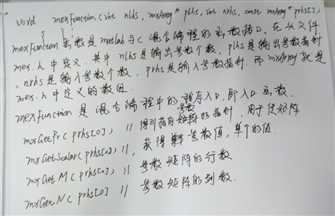 void mexfunction(int nlhs, mxArray* plhs, int nrhs, const mxArray* prhs[]);
mexfunction 函数是matlab与C混合编程的函数接口，在头文件
mex.h中定义，其中nlhs是输出参数个数，plhs是输出参数指针
，nrhs是输入参数个数，prhs是输入参数指针 而mxArray就是
mex.h中定义的数据
mexfunction 是混合编程中的程序入口，即入口函数
mxGetPr(prhs[0]) // 得到指向矩阵的指针，用于使矩阵
mxGetScalar(prhs[0]) // 获得某参数值，单个的值
mxGetM(prhs[0]) // 参数矩阵的行数
mxGetN(prhs[0]) // 参数矩阵的列数